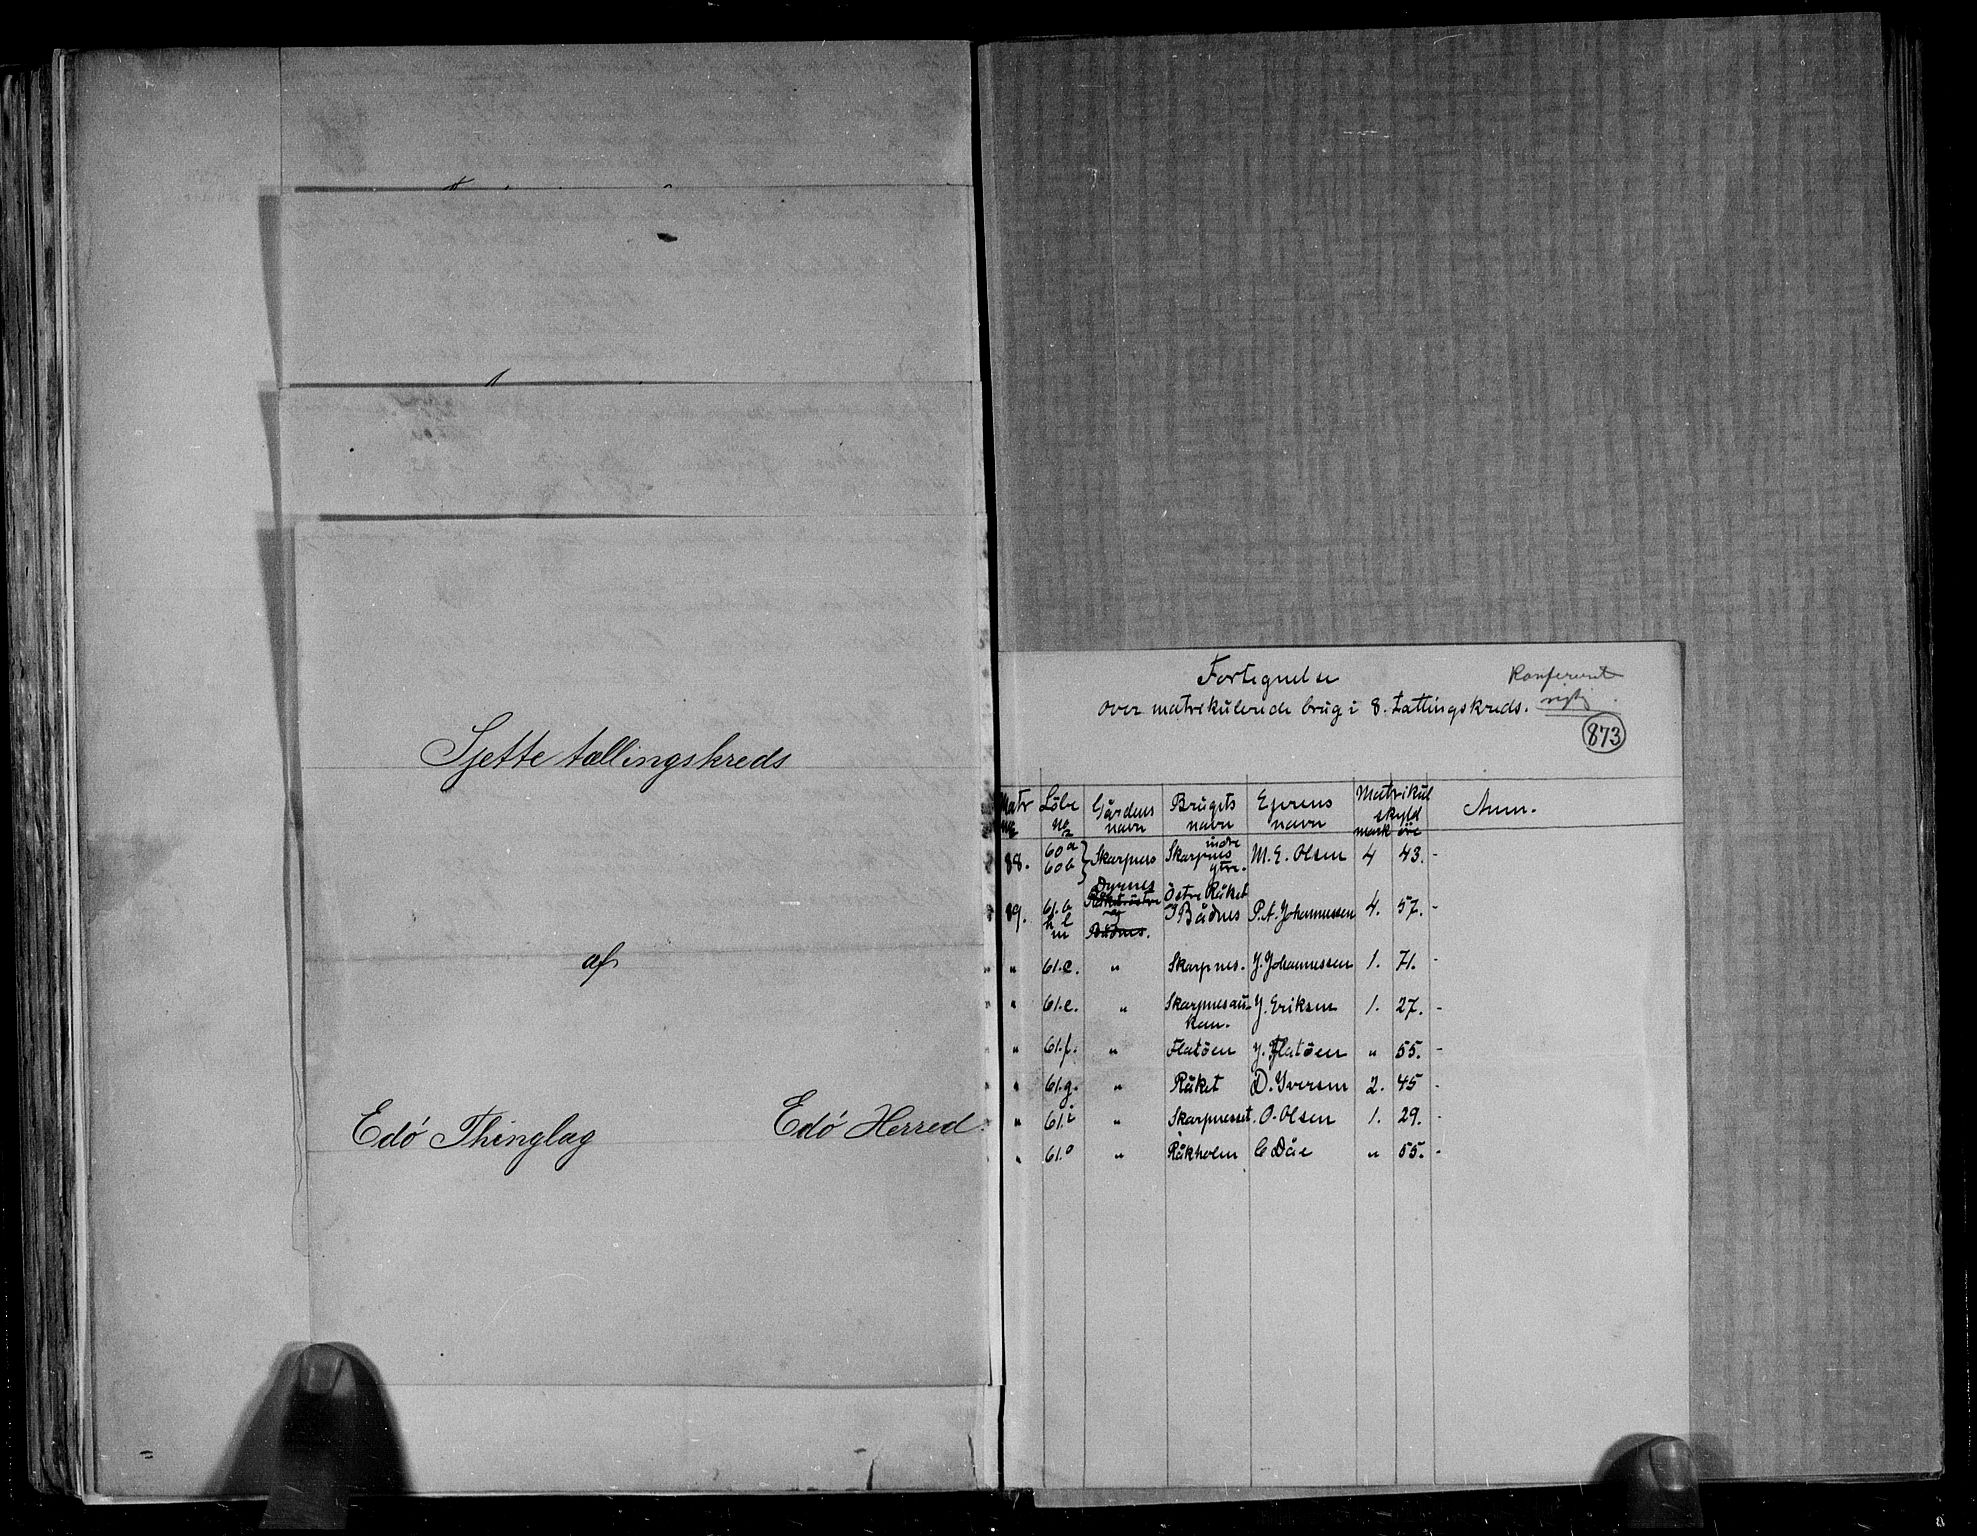 Sjette tællingskreds
af
Edö Thinglag Edö Herred.
Fortegnelse
over matrikulerede brug i 8. tællingskreds.
Konfereret
rigtig.
873
Matr No. Löbe No. Gårdens navn Brugets navn Ejerens navn Matrikul skyld mark öre Anm.
88. 60a 60b Skarpnes Skarpnes indre ytre. M. E. Olsen 4 43. -
89. 61.b k l m Dyrnes Råket östre og Bådnes. Östre Råket I Bådnes P. A. Johannessen 4. 57. -
" 61.c. " Skarpnes. J. Johannessen 1. 71. -
" 61.e. " Skarpnesaukan. J. Eriksen 1. 27. -
" 61.f. " Flatöen J. Flatöen " 55. -
" 61.g. " Råket D. Iversen 2. 45 -
" 61.i " Skarpneset. O. Olsen 1. 29. -
" 61.o " Råkholm C Dåe " 55. -